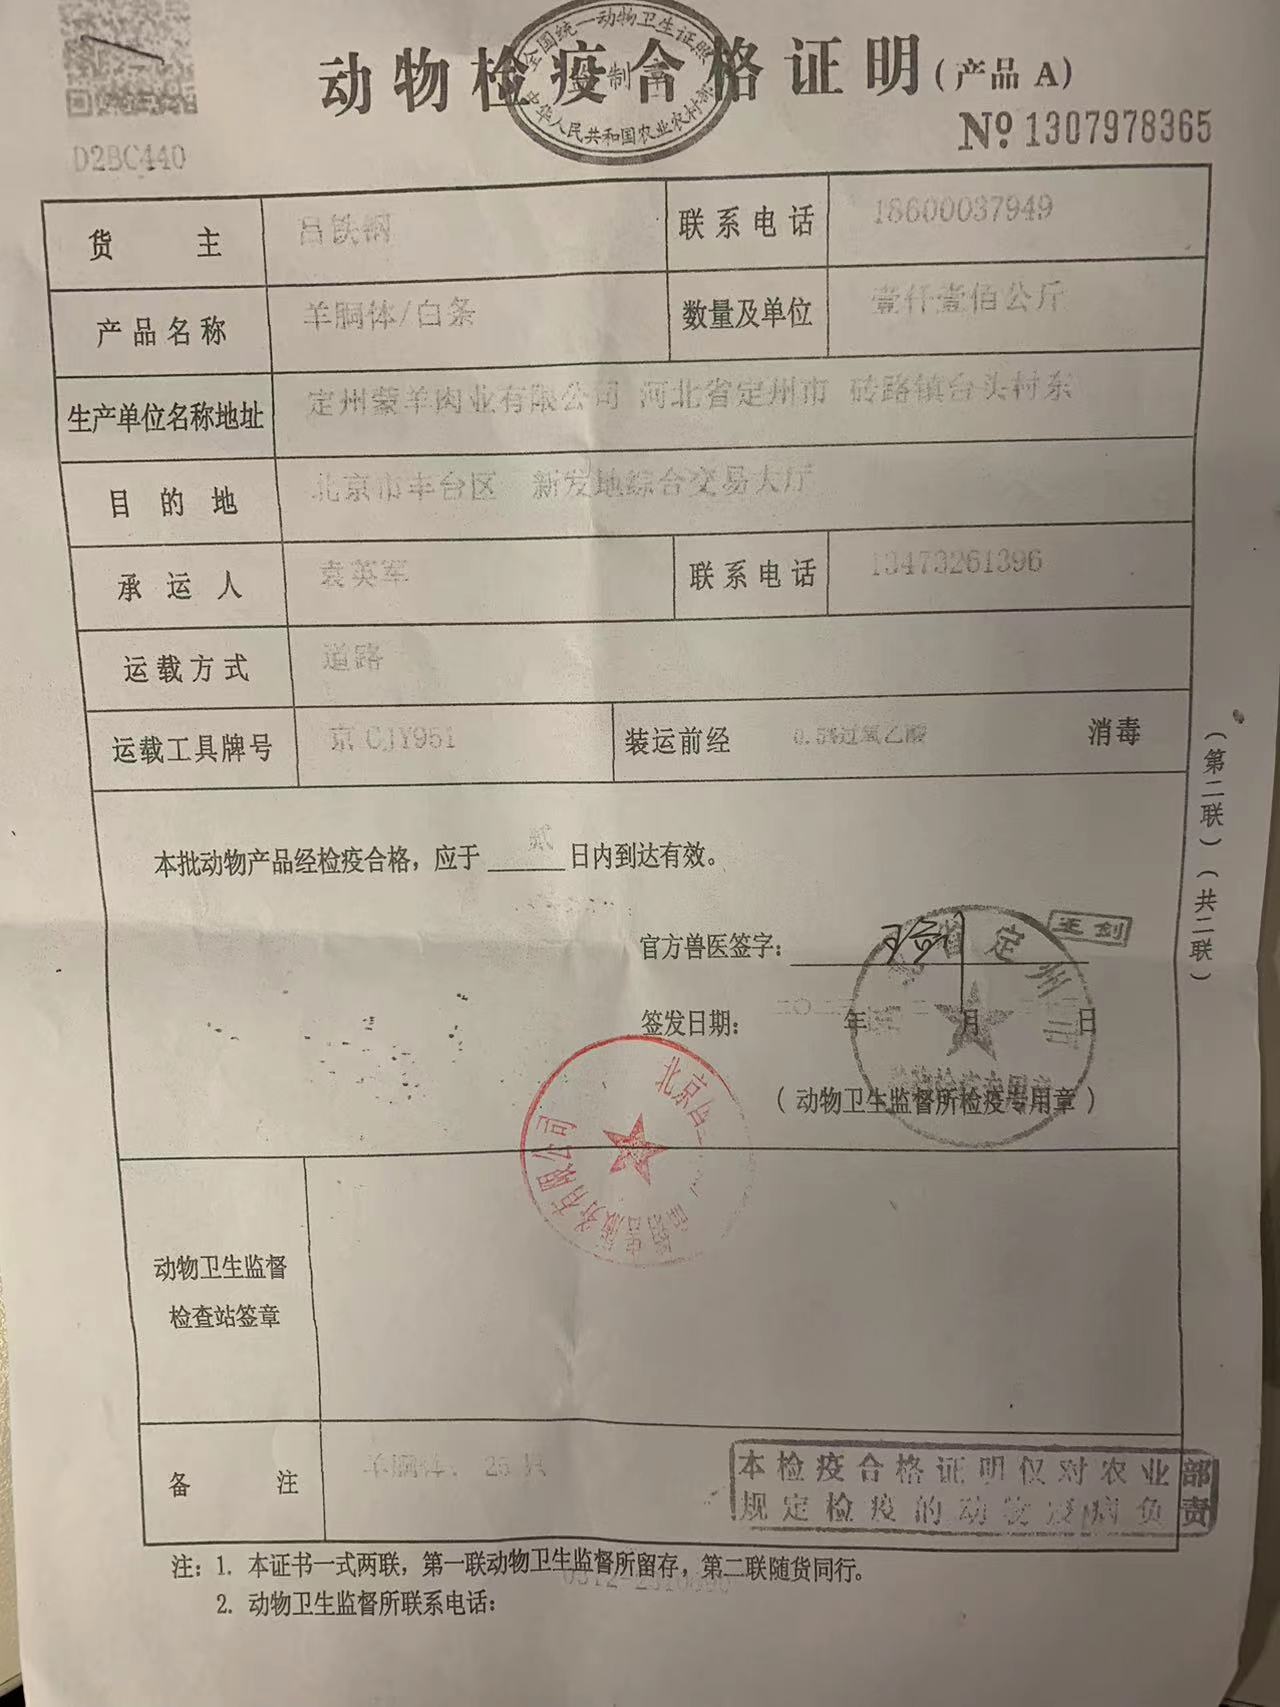 全国统一动物卫生证照
监制章
中华人民共和国农业农村部
动物检疫合格证明(产品 A)
D2BC440
№ 1307978365
货 主 吕铁钢 联系电话 18600037949
产品名称 羊胴体/白条 数量及单位 壹仟壹佰公斤
生产单位名称地址 定州蒙羊肉业有限公司 河北省定州市 砖路镇台头村东
目的地 北京市丰台区 新发地综合交易大厅
承运人 袁英军 联系电话 13473261396
运载方式 道路
运载工具牌号 京 CJY951 装运前经 0.5%过氧乙酸 消毒
本批动物产品经检疫合格，应于 贰 日内到达有效。
官方兽医签字： 王剑
王剑
省定州市
签发日期： 年 月 日
(动物卫生监督所检疫专用章)
北京
服务有限公司
动物卫生监督
检查站签章
备 注 羊胴体 25 只
本检疫合格证明仅对农业部
规定检疫的动物疫病负责
注：1. 本证书一式两联，第一联动物卫生监督所留存，第二联随货同行。
2. 动物卫生监督所联系电话：
(第二联)(共二联)